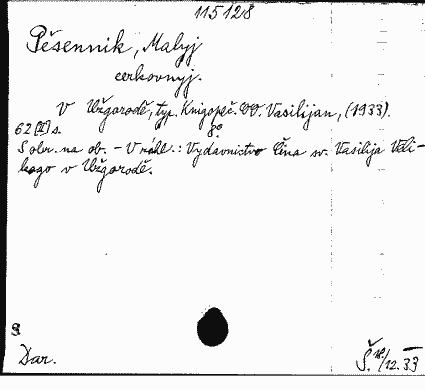 115128
Pěsennik, Malyj
cerkovnyj.
V Užgorodě, typ. Knigopeč. OO. Vasilijan, (1933).
62 [II] s. 8°
S obr. na ob. - V náhl.: Vydavnictvo Čina sv. Vasilija Veli-
kago v Užgorodě.
9
Dar.
Š. /12.33